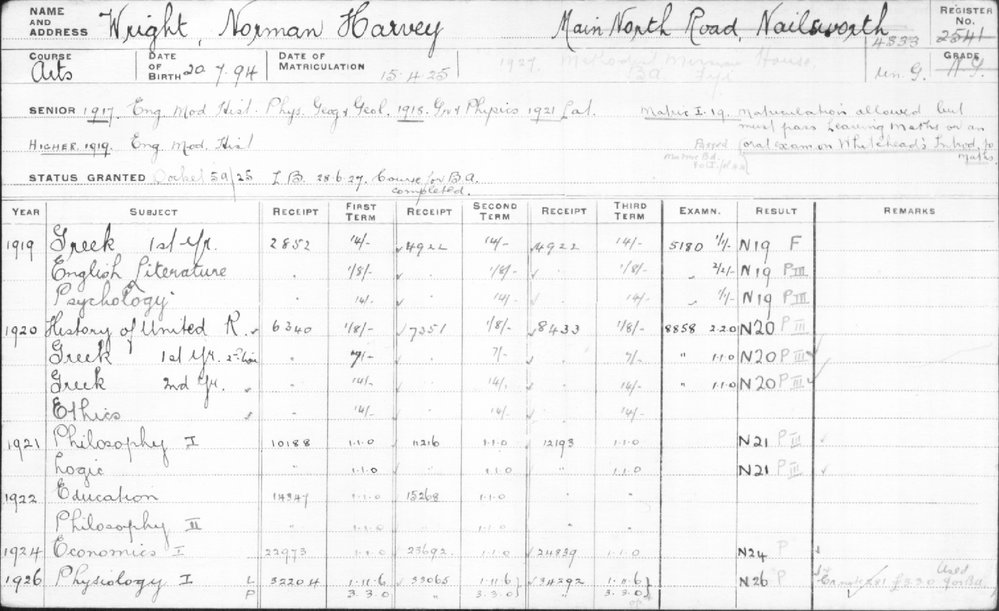 NAME AND ADDRESS Wright, Norman Harvey Main North Road, Nailsworth REGISTER No. 2541
4833
COURSE Arts DATE OF BIRTH 20.7.94 DATE OF MATRICULATION 15.4.25 1927. Methodist House, GRADE
Un. G. N.G.
SENIOR 1917. Eng. Mod. Hist. Phys. Geog & Geol. 1918. Gr & Physics 1921 Lat. Matric I. 19. Matriculation allowed but
must pass Leaving Maths or an
HIGHER. 1919. Eng. Mod. Hist Passed oral exam on Whitehead's Introd. to
Maths.
STATUS GRANTED Docket 59/25 L.B. 28.6.27. Course for B.A.
completed.
YEAR SUBJECT RECEIPT FIRST TERM RECEIPT SECOND TERM RECEIPT THIRD TERM EXAMN. RESULT REMARKS
1919 Greek 1st Yr. 2852 14/- 4922 14/- 4922 14/- 5180 1/1/- N19 F
English Literature 1/8/- 1/8/- 1/8/- " 2/2/- N19 P III
Psychology 14/- 14/- 14/- " 1/1/- N19 P III
1920 History of United K. 6340 1/8/- 7351 1/8/- 8433 1/8/- 8858 2.2.0 N20 P III
Greek 1st Yr. 7/- 7/- 7/- " 1.1.0 N20 P III
Greek 2nd Yr. 14/- 14/- 14/- " 1.1.0 N20 P III
Ethics 14/- 14/- 14/-
1921 Philosophy I 10188 1.1.0 11216 1.1.0 12193 1.1.0 N21 P II
Logic " 1.1.0 " 1.1.0 " 1.1.0 N21 P III
1922 Education 14347 1.1.0 15268 1.1.0 " "
Philosophy II " 1.1.0 " 1.1.0 " "
1924 Economics I 22973 1.1.0 23692 1.1.0 24839 1.1.0 N24 P
1926 Physiology I L 32204 1.11.6 33065 1.11.6 34292 1.11.6 N26 P £3.3.0 Used for B.A.
P 3.3.0 " 3.3.0 " 3.3.0